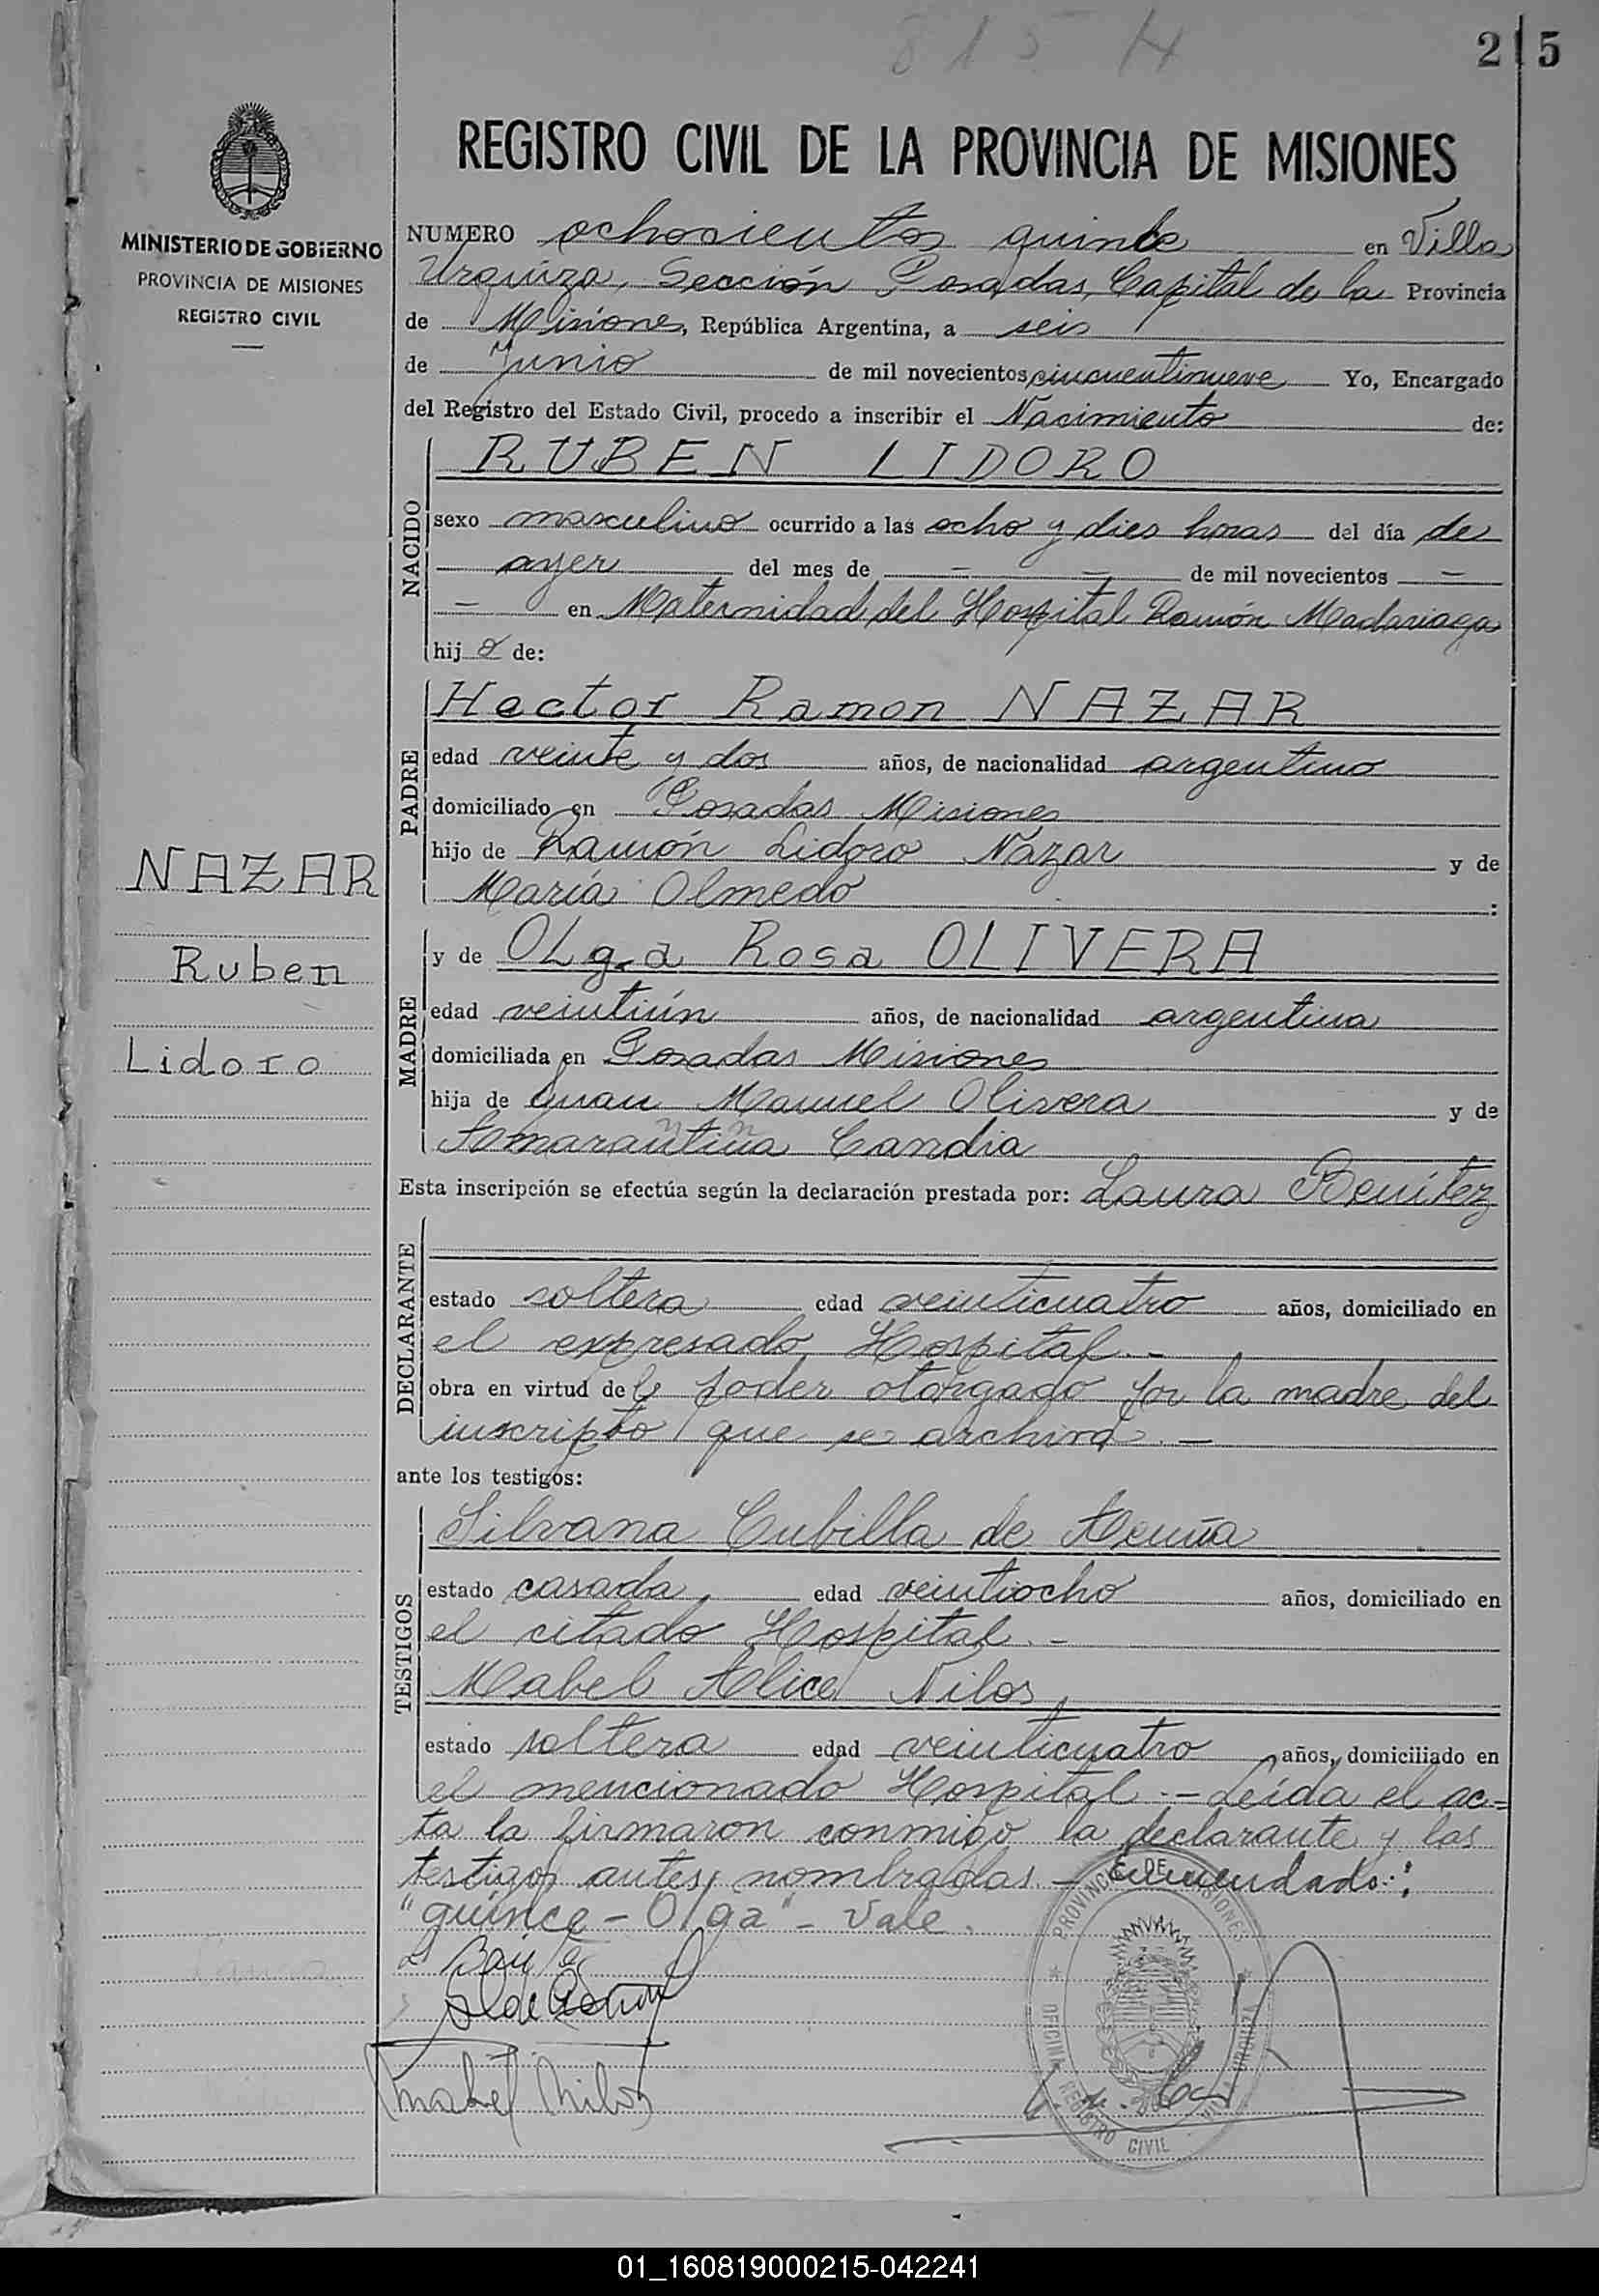 815 H
215
MINISTERIO DE GOBIERNO
PROVINCIA DE MISIONES
REGISTRO CIVIL
NAZAR
Ruben
Lidoro
REGISTRO CIVIL DE LA PROVINCIA DE MISIONES
NUMERO ochocientos quince en Villa
Urquiza, Sección Posadas, Capital de la Provincia
de Misiones, República Argentina, a seis
de Junio de mil novecientos cincuentinueve Yo, Encargado
del Registro del Estado Civil, procedo a inscribir el Nacimiento de:
NACIDO
RUBEN LIDORO
sexo masculino ocurrido a las ocho y dies horas del día de
ayer del mes de – – de mil novecientos –
– en Maternidad del Hospital Ramón Madariaga
hijo de:
PADRE
Hector Ramon NAZAR
edad veinte y dos años, de nacionalidad argentino
domiciliado en Posadas Misiones
hijo de Ramón Lidoro Nazar y de
María Olmedo :
MADRE
y de OLga Rosa OLIVERA
edad veintiún años, de nacionalidad argentina
domiciliada en Posadas Misiones
hija de Juan Manuel Olivera y de
Amarantina Candia
Esta inscripción se efectúa según la declaración prestada por: Laura Benítez
DECLARANTE
estado soltera edad veinticuatro años, domiciliado en
el expresado Hospital.–
obra en virtud de poder otorgado por la madre del
inscripto que se archiva.–
ante los testigos:
TESTIGOS
Silvana Cubilla de Acuña
estado casada edad veintiocho años, domiciliado en
el citado Hospital.–
Mabel Alice Nilos
estado soltera edad veinticuatro años, domiciliado en
el mencionado Hospital.– Leída el ac=
ta la firmaron conmigo la declarante y las
testigos antes nombradas.– Enmendado:
"quince – Olga" – Vale.
S de Acuña
Mabel Nilos
PROVINCIA DE MISIONES
OFICINA REGISTRO CIVIL
01_160819000215-042241